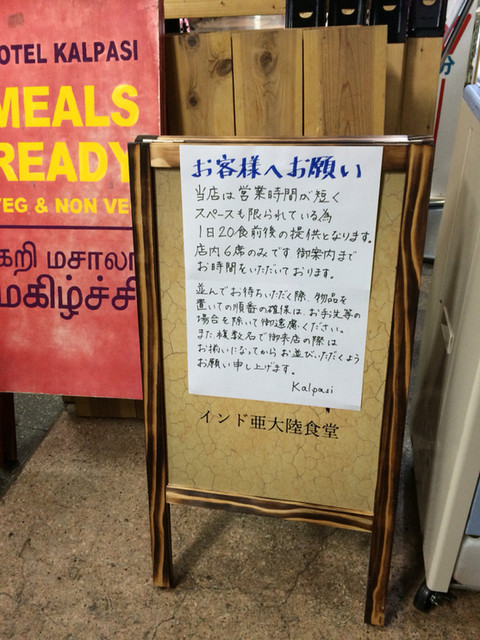 OTEL KALPASI
MEALS
READY
VEG & NON VE
கறி மசாலா
மகிழ்ச்சி
お客様へお願い
当店は営業時間が短く
スペースも限られている為
1日20食前後の提供となります。
店内6席のみです 御案内まで
お時間をいただいております。
並んでお待ちいただく際、物品を
置いての順番の確保は、お手洗等の
場合を除いて御遠慮ください。
また複数名で御来店の際は
お揃いになってからお並びいただくよう
お願い申し上げます。
Kalpasi
インド亜大陸食堂